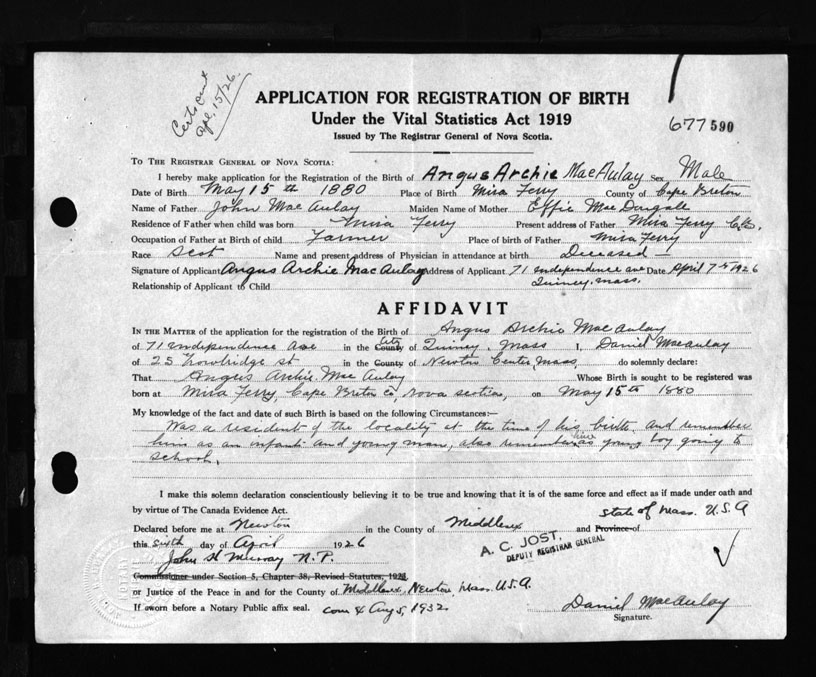 Certs sent
Apl. 15/26.
APPLICATION FOR REGISTRATION OF BIRTH
Under the Vital Statistics Act 1919
Issued by The Registrar General of Nova Scotia.
677590
To The Registrar General of Nova Scotia:
I hereby make application for the Registration of the Birth of Angus Archie MacAulay Sex Male
Date of Birth May 15th 1880 Place of Birth Mira Ferry County of Cape Breton
Name of Father John MacAulay Maiden Name of Mother Effie MacDugale
Residence of Father when child was born Mira Ferry Present address of Father Mira Ferry C.B.
Occupation of Father at Birth of child Farmer Place of birth of Father Mira Ferry
Race Scot Name and present address of Physician in attendance at birth Deceased —
Signature of Applicant Angus Archie MacAulay Address of Applicant 71 Independence ave Date April 7th 1926
Relationship of Applicant to Child Quincy, Mass.
AFFIDAVIT
In the Matter of the application for the registration of the Birth of Angus Archie MacAulay
of 71 Independence Ave in the County City of Quincy, Mass I, Daniel MacAulay
of 25 Trowbridge st in the County of Newton Center, Mass, do solemnly declare:
That Angus Archie MacAulay Whose Birth is sought to be registered was
born at Mira Ferry, Cape Breton Co, Nova Scotia, on May 15th 1880
My knowledge of the fact and date of such Birth is based on the following Circumstances:—
Was a resident of the locality at the time of his birth, and remember
him as an infant and young man, also remember him as young boy going to
school.
I make this solemn declaration conscientiously believing it to be true and knowing that it is of the same force and effect as if made under oath and
by virtue of The Canada Evidence Act.
Declared before me at Newton in the County of Middlesex and Province of State of Mass. U.S.A
this sixth day of April 1926
A. C. JOST,
DEPUTY REGISTRAR GENERAL
John H Murray N.P.
Commissioner under Section 5, Chapter 38, Revised Statutes, 1923
or Justice of the Peace in and for the County of Middlesex, Newton, Mass. U.S.A.
If sworn before a Notary Public affix seal. com x Aug 5, 1932
Daniel MacAulay
Signature.